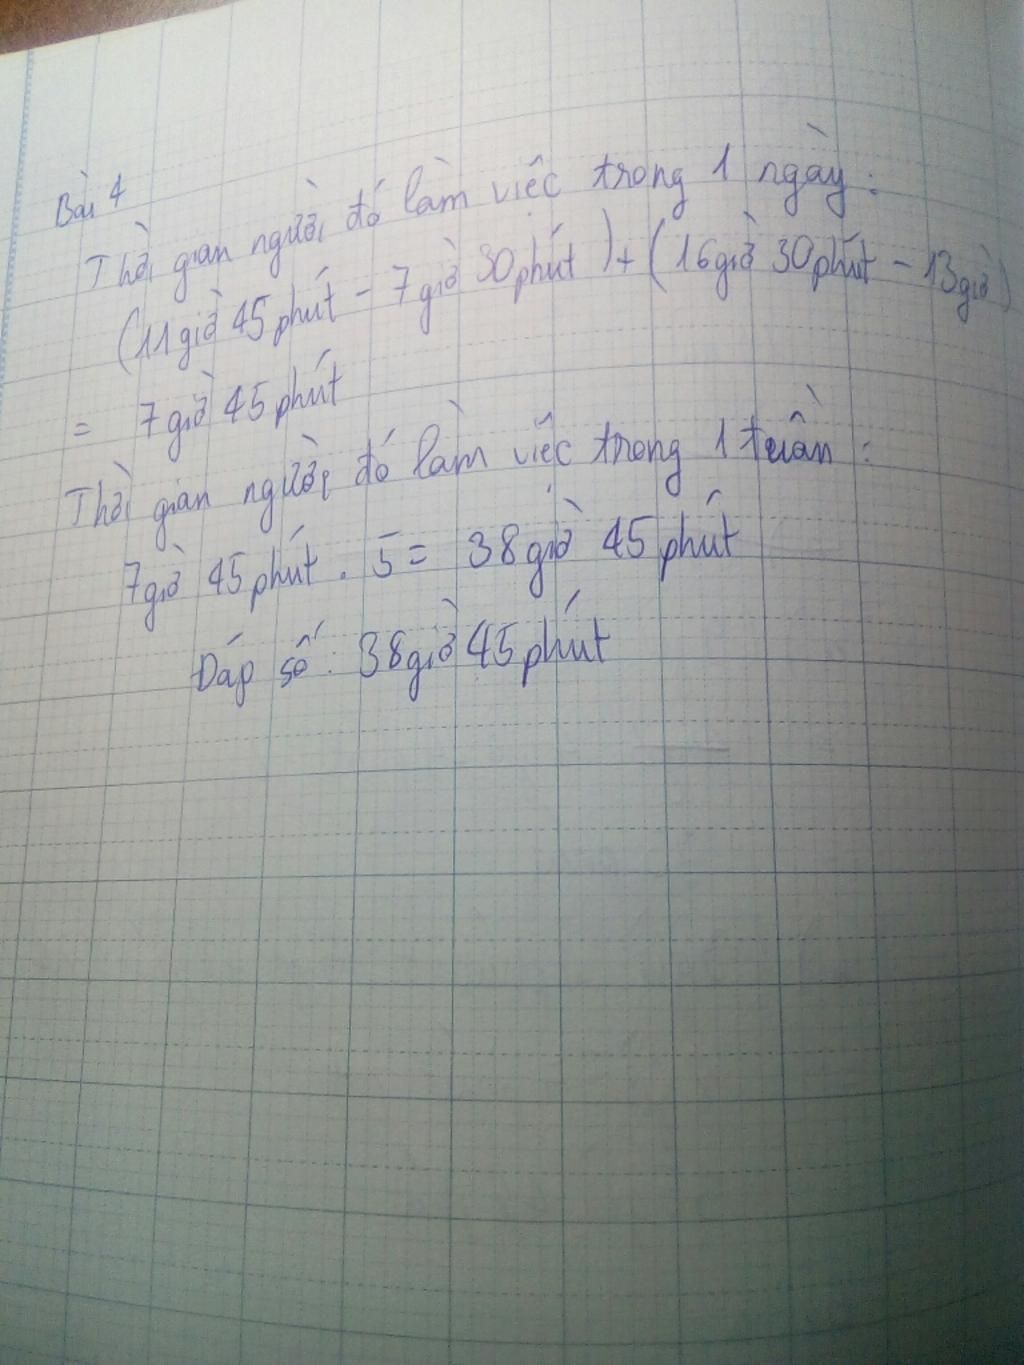 Bài 4
Thời gian người đó làm việc trong 1 ngày :
(11giờ 45phút - 7giờ 30phút) + (16giờ 30phút - 13giờ)
= 7giờ 45phút
Thời gian người đó làm việc trong 1 tuần :
7giờ 45phút . 5 = 38giờ 45phút
Đáp số : 38giờ 45phút